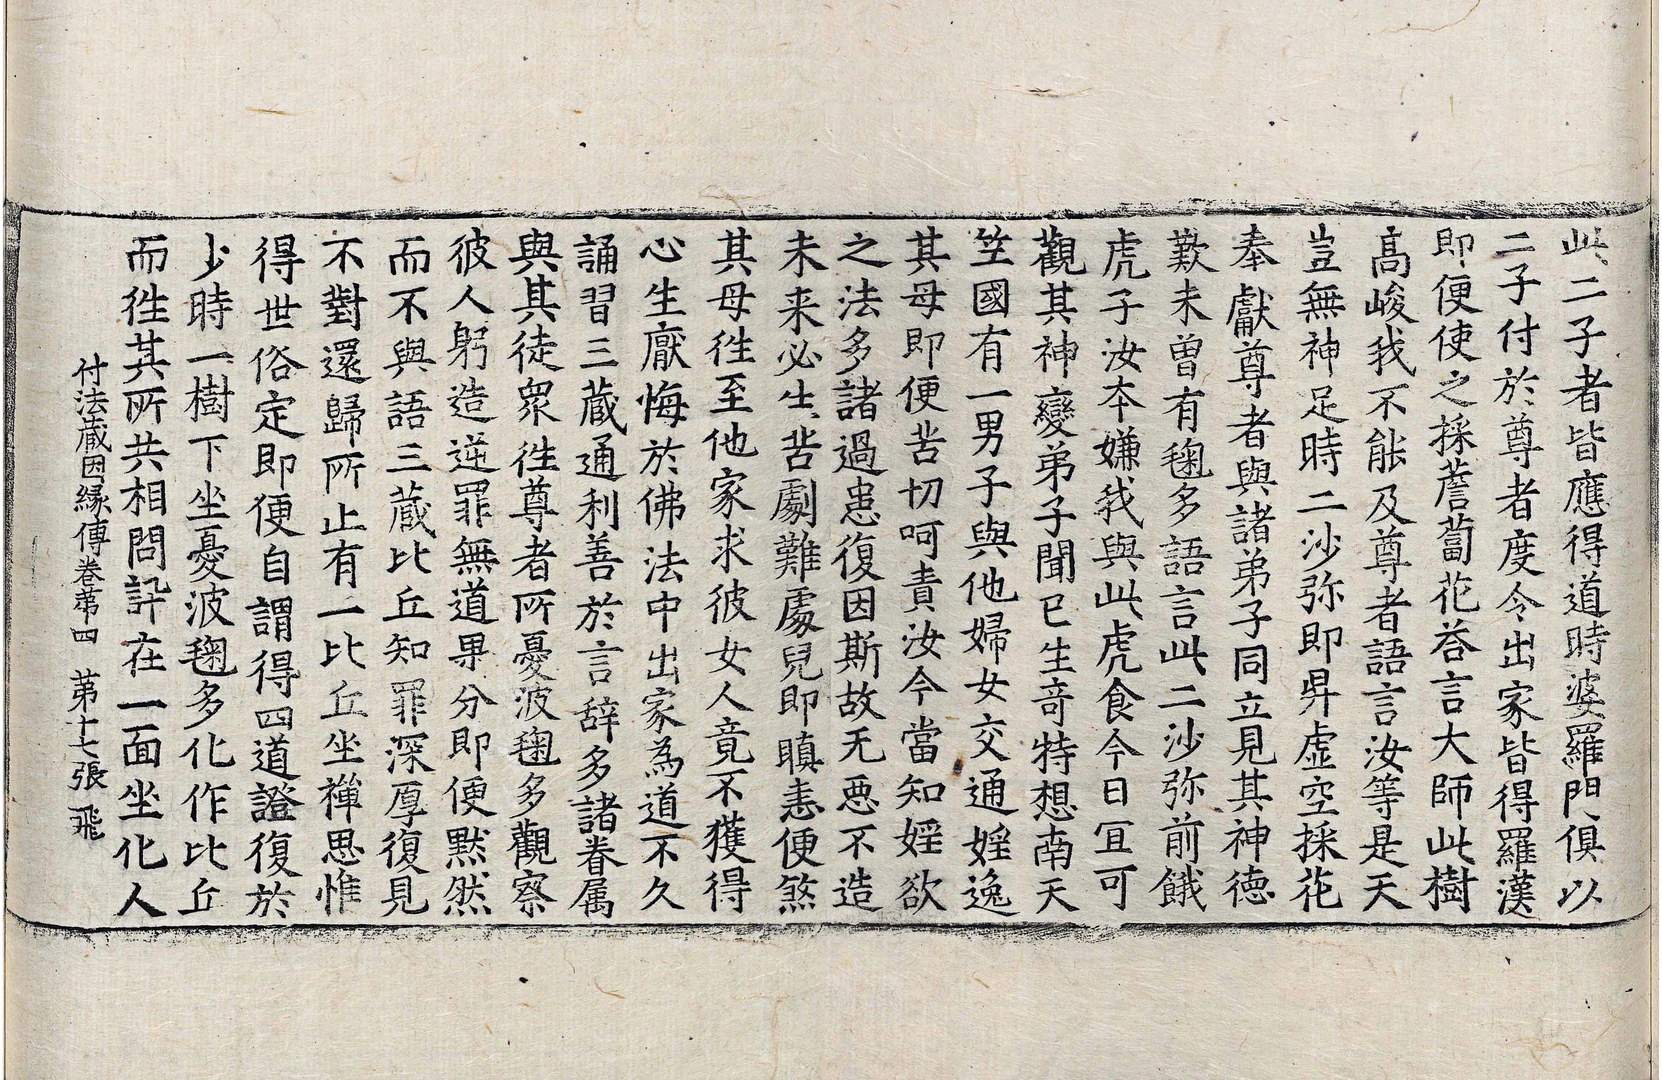 此二子者皆應得道時婆羅門俱以
二子付於尊者度令出家皆得羅漢
即便使之採薝蔔花荅言大師此樹
高峻我不能及尊者語言汝等是天
豈無神足時二沙弥即昇虛空採花
奉獻尊者與諸弟子同立見其神德
歎未曾有毱多語言此二沙弥前餓
虎子汝本嫌我與此虎食今日冝可
觀其神變弟子聞已生竒特想南天
竺國有一男子與他婦女交通婬逸
其母即便苦切呵責汝今當知婬欲
之法多諸過患復因斯故无惡不造
未来必生苦劇難處兒即瞋恚便煞
其母徃至他家求彼女人竟不獲得
心生厭悔於佛法中出家為道不久
誦習三蔵通利善於言辞多諸眷属
與其徒衆徃尊者所憂波毱多觀察
彼人躬造逆罪無道果分即便默然
而不與語三蔵比丘知罪深厚復見
不對還歸所止有一比丘坐禪思惟
得世俗定即便自謂得四道證復於
少時一樹下坐憂波毱多化作比丘
而徃其所共相問訊在一面坐化人
付法蔵因縁傳卷苐四　苐十七張　飛